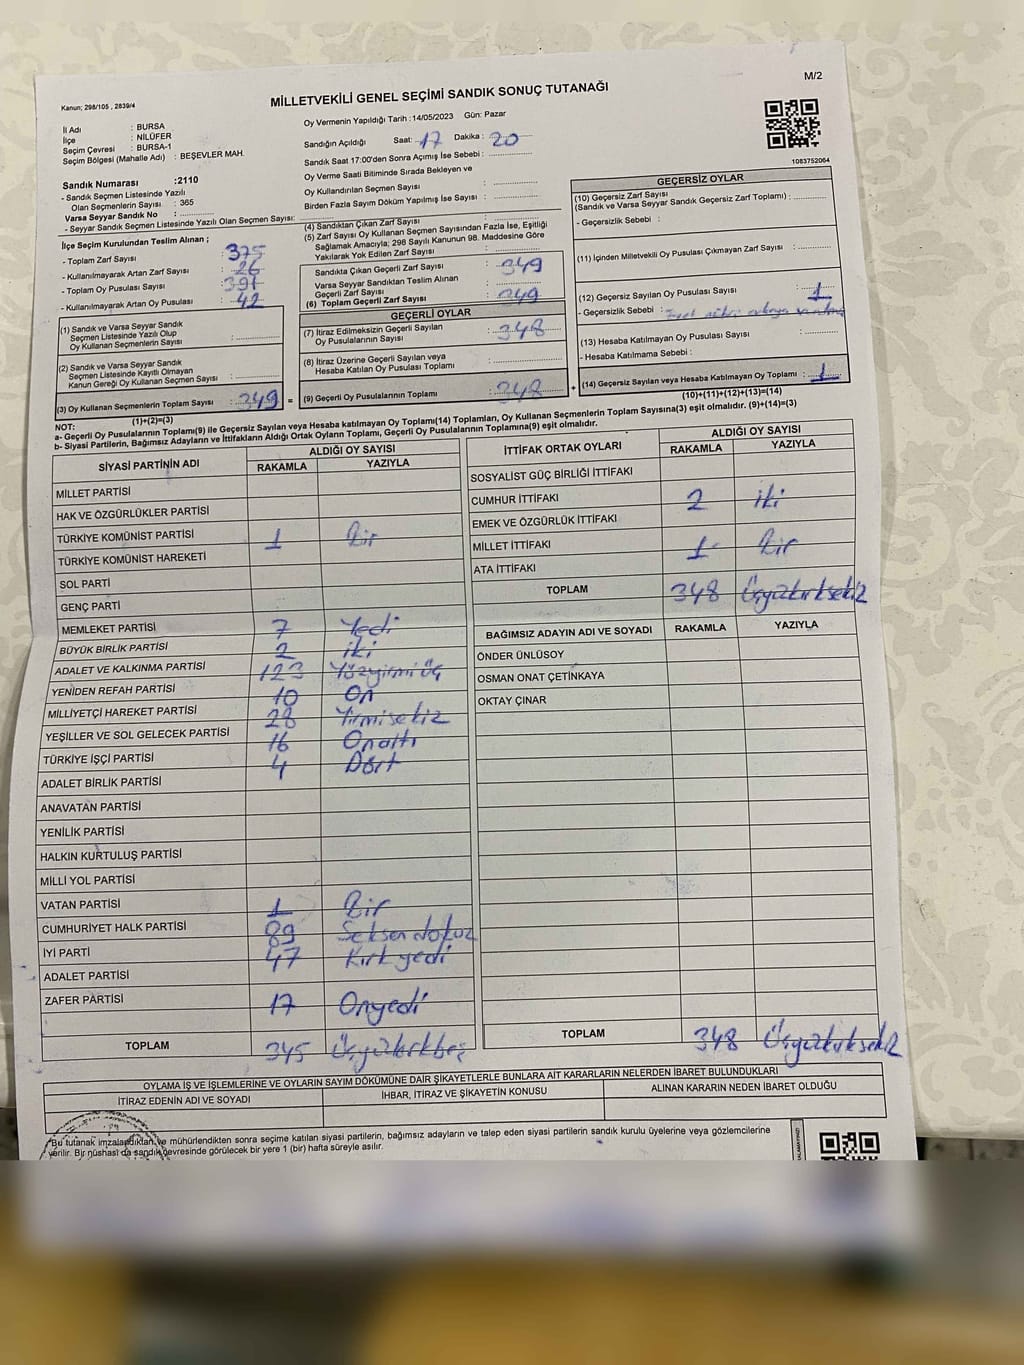 M/2
Kanun; 298/105 , 2839/4
MİLLETVEKİLİ GENEL SEÇİMİ SANDIK SONUÇ TUTANAĞI
İl Adı : BURSA
İlçe : NİLÜFER
Seçim Çevresi : BURSA-1
Seçim Bölgesi (Mahalle Adı) : BEŞEVLER MAH.
Sandık Numarası :2110
- Sandık Seçmen Listesinde Yazılı
Olan Seçmenlerin Sayısı : 365
Varsa Seyyar Sandık No :
- Seyyar Sandık Seçmen Listesinde Yazılı Olan Seçmen Sayısı:
İlçe Seçim Kurulundan Teslim Alınan ;
- Toplam Zarf Sayısı : 375
- Kullanılmayarak Artan Zarf Sayısı : 26
- Toplam Oy Pusulası Sayısı : 391
- Kullanılmayarak Artan Oy Pusulası : 42
(1) Sandık ve Varsa Seyyar Sandık
Seçmen Listesinde Yazılı Olup
Oy Kullanan Seçmenlerin Sayısı :
(2) Sandık ve Varsa Seyyar Sandık
Seçmen Listesinde Kayıtlı Olmayan
Kanun Gereği Oy Kullanan Seçmen Sayısı :
(3) Oy Kullanan Seçmenlerin Toplam Sayısı : 349
(1)+(2)=(3)
Oy Vermenin Yapıldığı Tarih : 14/05/2023 Gün: Pazar
Sandığın Açıldığı Saat: 17 Dakika : 20
Sandık Saat 17:00'den Sonra Açımış İse Sebebi :
Oy Verme Saati Bitiminde Sırada Bekleyen ve
Oy Kullandırılan Seçmen Sayısı :
Birden Fazla Sayım Döküm Yapılmış İse Sayısı :
(4) Sandıktan Çıkan Zarf Sayısı :
(5) Zarf Sayısı Oy Kullanan Seçmen Sayısından Fazla İse, Eşitliği
Sağlamak Amacıyla; 298 Sayılı Kanunun 98. Maddesine Göre
Yakılarak Yok Edilen Zarf Sayısı :
Sandıkta Çıkan Geçerli Zarf Sayısı : 349
Varsa Seyyar Sandıktan Teslim Alınan
Geçerli Zarf Sayısı :
(6) Toplam Geçerli Zarf Sayısı : 349
GEÇERLİ OYLAR
(7) İtiraz Edilmeksizin Geçerli Sayılan
Oy Pusulalarının Sayısı : 348
(8) İtiraz Üzerine Geçerli Sayılan veya
Hesaba Katılan Oy Pusulası Toplamı :
= (9) Geçerli Oy Pusulalarının Toplamı : 348 +
1083752064
GEÇERSİZ OYLAR
(10) Geçersiz Zarf Sayısı
(Sandık ve Varsa Seyyar Sandık Geçersiz Zarf Toplamı) :
- Geçersizlik Sebebi :
(11) İçinden Milletvekili Oy Pusulası Çıkmayan Zarf Sayısı :
(12) Geçersiz Sayılan Oy Pusulası Sayısı : 1
- Geçersizlik Sebebi :
(13) Hesaba Katılmayan Oy Pusulası Sayısı :
- Hesaba Katılmama Sebebi :
(14) Geçersiz Sayılan veya Hesaba Katılmayan Oy Toplamı : 1
(10)+(11)+(12)+(13)=(14)
NOT:
a- Geçerli Oy Pusulalarının Toplamı(9) ile Geçersiz Sayılan veya Hesaba katılmayan Oy Toplamı(14) Toplamları, Oy Kullanan Seçmenlerin Toplam Sayısına(3) eşit olmalıdır. (9)+(14)=(3)
b- Siyasi Partilerin, Bağımsız Adayların ve İttifakların Aldığı Ortak Oyların Toplamı, Geçerli Oy Pusulalarının Toplamına(9) eşit olmalıdır.
SİYASİ PARTİNİN ADI ALDIĞI OY SAYISI
RAKAMLA YAZIYLA
MİLLET PARTİSİ
HAK VE ÖZGÜRLÜKLER PARTİSİ
TÜRKİYE KOMÜNİST PARTİSİ 1 Bir
TÜRKİYE KOMÜNİST HAREKETİ
SOL PARTİ
GENÇ PARTİ
MEMLEKET PARTİSİ 7 Yedi
BÜYÜK BİRLİK PARTİSİ 2 iki
ADALET VE KALKINMA PARTİSİ 123 Yüzyirmi üç
YENİDEN REFAH PARTİSİ 10 On
MİLLİYETÇİ HAREKET PARTİSİ 28 Yirmisekiz
YEŞİLLER VE SOL GELECEK PARTİSİ 16 Onaltı
TÜRKİYE İŞÇİ PARTİSİ 4 Dört
ADALET BİRLİK PARTİSİ
ANAVATAN PARTİSİ
YENİLİK PARTİSİ
HALKIN KURTULUŞ PARTİSİ
MİLLİ YOL PARTİSİ
VATAN PARTİSİ 1 Bir
CUMHURİYET HALK PARTİSİ 89 Seksen dokuz
İYİ PARTİ 47 Kırk yedi
ADALET PARTİSİ
ZAFER PARTİSİ 17 Onyedi
TOPLAM 345 Üçyüzkırkbeş
İTTİFAK ORTAK OYLARI ALDIĞI OY SAYISI
RAKAMLA YAZIYLA
SOSYALİST GÜÇ BİRLİĞİ İTTİFAKI
CUMHUR İTTİFAKI 2 iki
EMEK VE ÖZGÜRLÜK İTTİFAKI
MİLLET İTTİFAKI 1 Bir
ATA İTTİFAKI
TOPLAM 348 Üçyüzkırksekiz
BAĞIMSIZ ADAYIN ADI VE SOYADI RAKAMLA YAZIYLA
ÖNDER ÜNLÜSOY
OSMAN ONAT ÇETİNKAYA
OKTAY ÇINAR
TOPLAM 348 Üçyüzkırksekiz
OYLAMA İŞ VE İŞLEMLERİNE VE OYLARIN SAYIM DÖKÜMÜNE DAİR ŞİKAYETLERLE BUNLARA AİT KARARLARIN NELERDEN İBARET BULUNDUKLARI
İTİRAZ EDENİN ADI VE SOYADI İHBAR, İTİRAZ VE ŞİKAYETİN KONUSU ALINAN KARARIN NEDEN İBARET OLDUĞU
Bu tutanak imzalandıktan ve mühürlendikten sonra seçime katılan siyasi partilerin, bağımsız adayların ve talep eden siyasi partilerin sandık kurulu üyelerine veya gözlemcilerine
verilir. Bir nüshası da sandık çevresinde görülecek bir yere 1 (bir) hafta süreyle asılır.